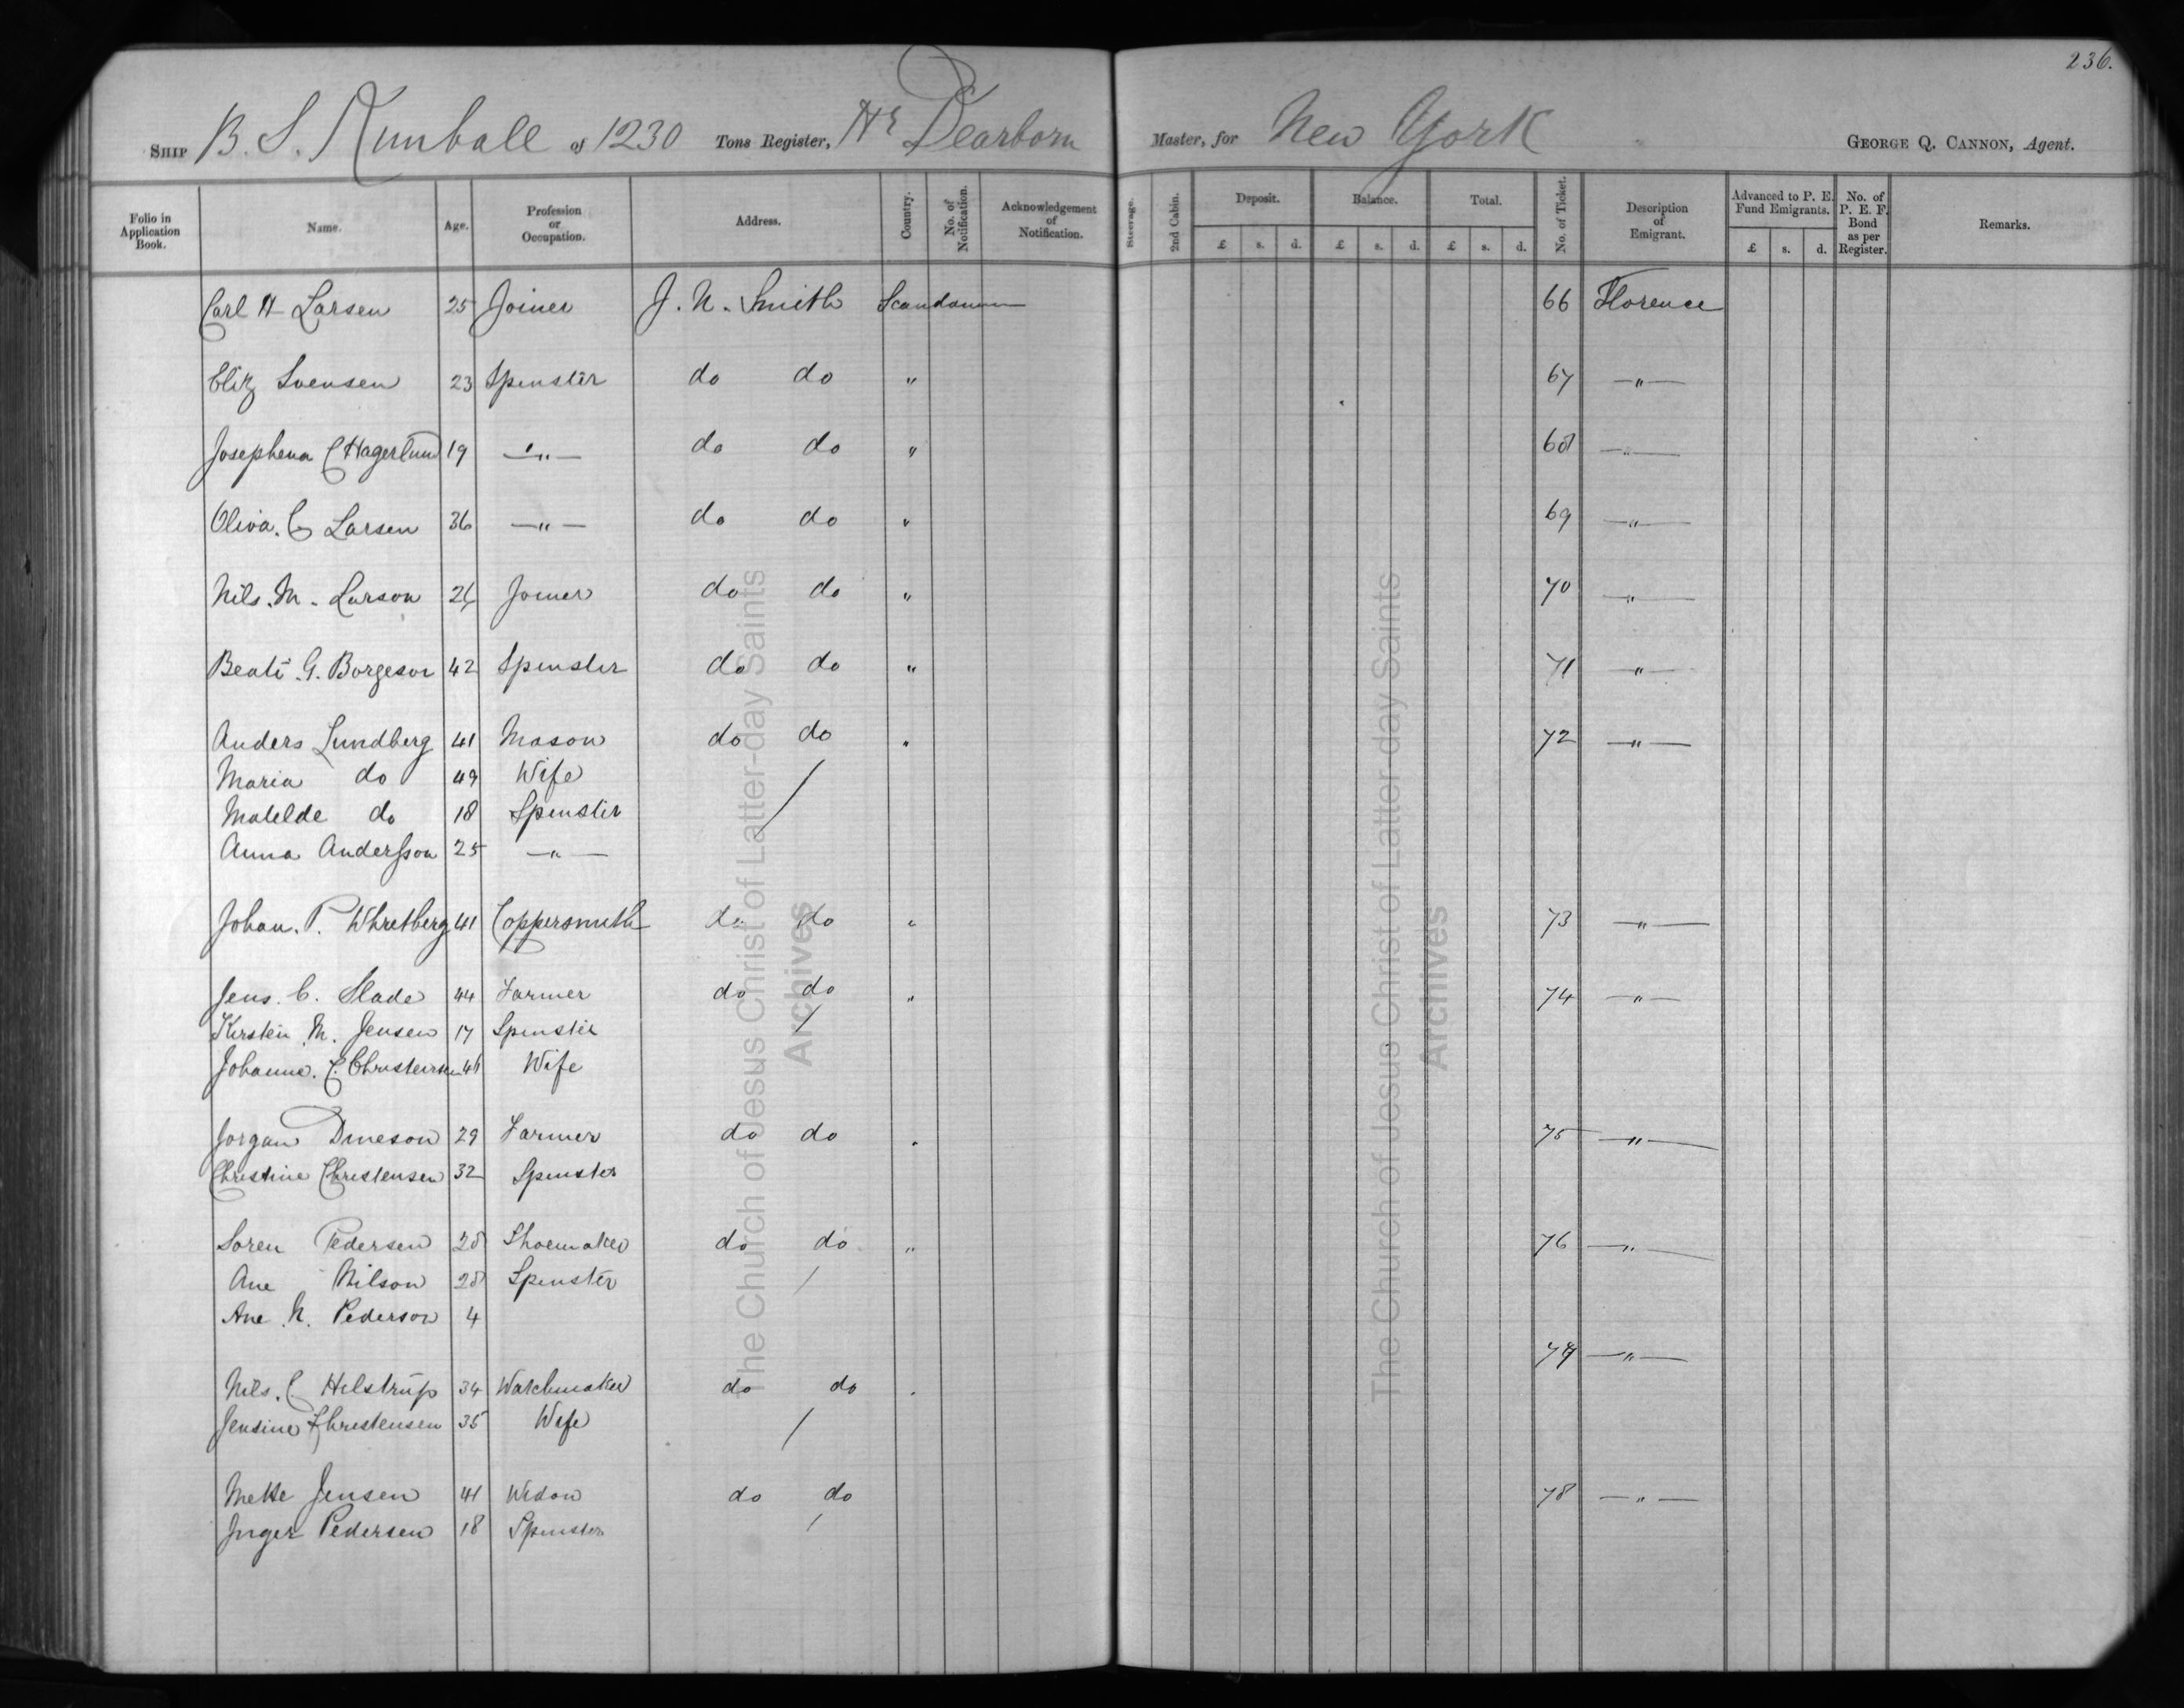 236.
SHIP B. S. Kimball of 1230 Tons Register, Hy Dearborn Master, for New York GEORGE Q. CANNON, Agent.
Folio in Application Book. Name. Age. Profession or Occupation. Address. Country. No. of Notification. Acknowledgement of Notification. Steerage. 2nd Cabin. Deposit. Balance. Total. No. of Ticket. Description of Emigrant. Advanced to P. E. Fund Emigrants. No. of P. E. F. Bond as per Register. Remarks.
£ s. d. £ s. d. £ s. d. £ s. d.
Carl H Larsen 25 Joiner J. N. Smith 66 Florence
Eliz Svensen 23 Spenster do do " 67 —"—
Josephena C Hagerlund 19 —"— do do " 68 —"—
Oliva. C Larsen 36 —"— do do " 69 —"—
Nils. M. Larson Joiner do do " 70 —"—
Beate G. Borgeson 42 Spenster do do " 71 —"—
Anders Lundberg 41 Mason do do " 72 —"—
Maria do 49 Wife
Matelde do 18 Spenster
Anna Andersson 25 —"—
Johan. P. Whretberg 41 Coppersmith do do " 73 —"—
Jens. C. Slade 44 Farmer do do " 74 —"—
Kirsten M. Jensen 17 Spenster
Johanne. C. Wife
Jorgan Dineson 29 Farmer do do " 75 —"—
Christine Christensen 32 Spenster
Soren Pedersen 28 Shoemaker do do " 76 —"—
Ane Nilson 28 Spenster
Ane N. Pederson 4
77 —"—
Nils. C Helstrup 34 Watchmaker do do "
Jensine Christensen 35 Wife
Mette Jensen 41 Widow do do 78 —"—
Inger Pedersen 18 Spenster
The Church of Jesus Christ of Latter-day Saints
Archives
The Church of Jesus Christ of Latter-day Saints
Archives